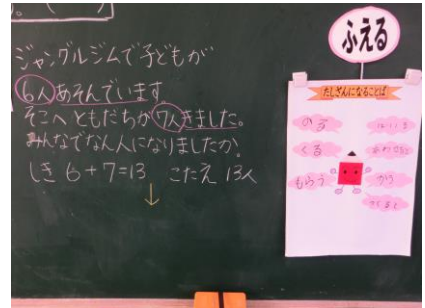 ジャングルジムで子どもが
6人あそんでいます
そこへともだちが7人きました。
みんなでなん人になりましたか。
しき 6+7=13 こたえ 13人
ふえる
たしざんになることば
のる
くる
もらう
かう